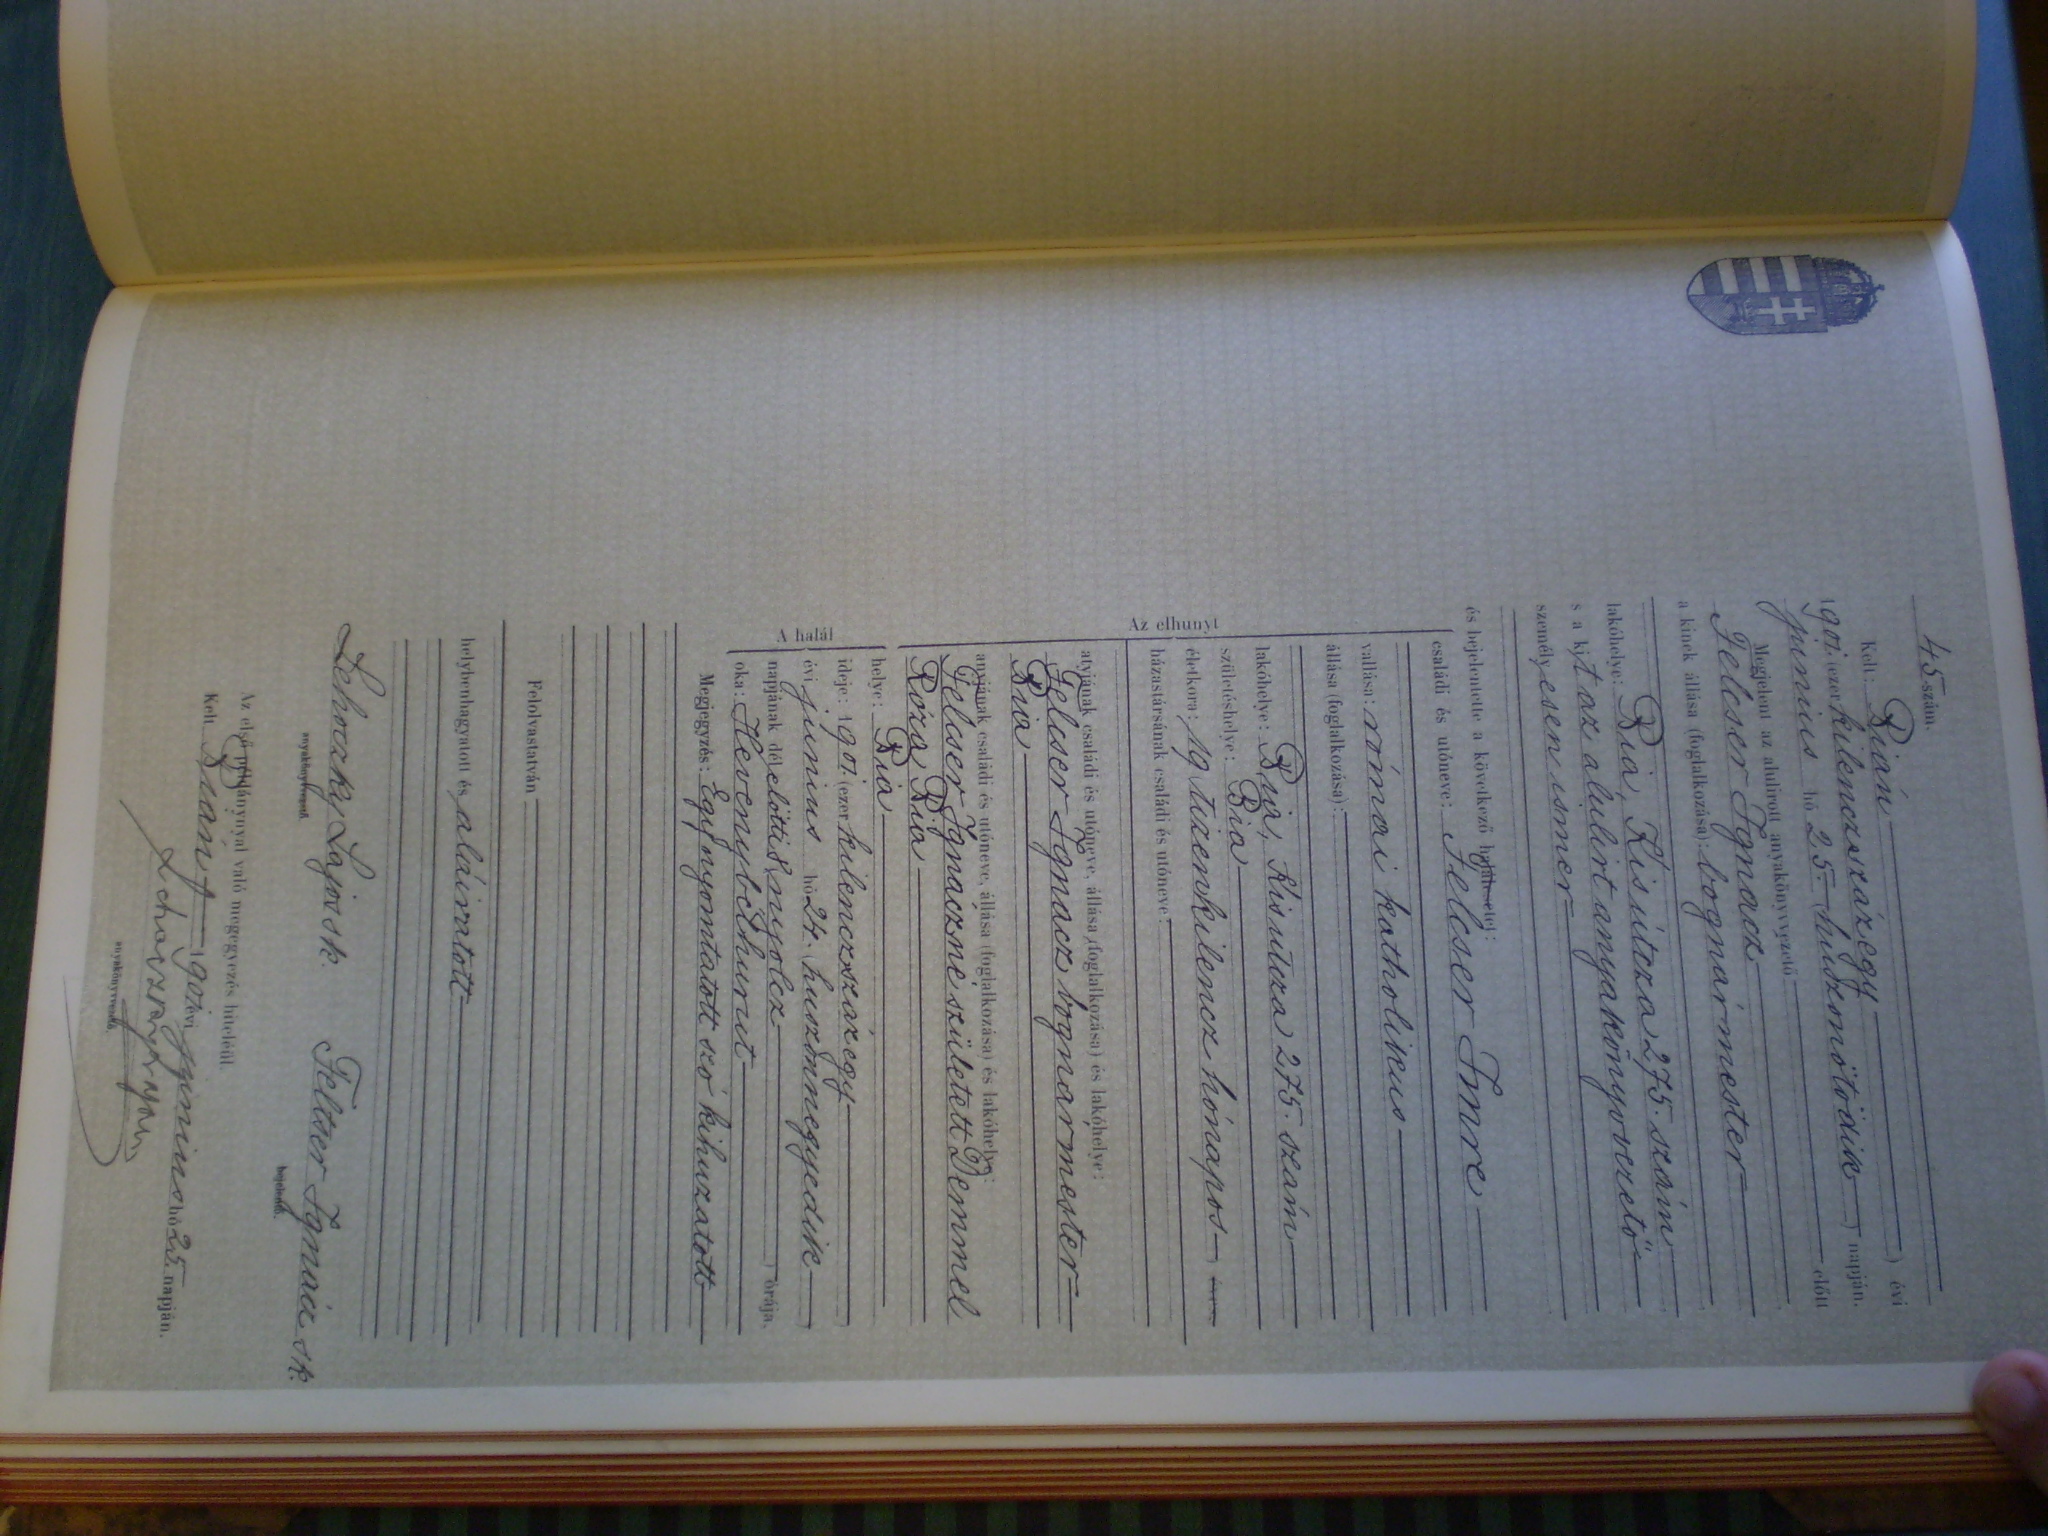 45 szám.
Kelt: Bián évi
1901. (ezer kilenczszáz egy
junius hó 25. (huszonötödik) napján.
Megjelent az alulirott anyakönyvvezető előtt
Felcser Ignacz
a kinek állása (foglalkozása): bognármester
lakóhelye: Bia, Kis utcza 275. szám
s a kit az alulirt anyakönyvvezető
személyesen ismer
és bejelentette a következő halálesetet:
Az elhunyt
családi és utóneve: Felcser Imre
vallása: római katholikus
állása (foglalkozása):
lakóhelye: Bia, Kis utcza 275. szám
születéshelye: Bia
életkora: 19 tizenkilencz hónapos
házastársának családi és utóneve:
atyjának családi és utóneve, állása (foglalkozása) és lakóhelye:
Felcser Ignacz bognármester
Bia
anyjának családi és utóneve, állása (foglalkozása) és lakóhelye:
Felcser Ignaczné született Demmel
Róza, Bia
A halál
helye: Bia
ideje: 1901. (ezer kilenczszáz egy
évi június hó 24. huszonnegyedik
napjának délelőtti 8, nyolcz órája.
oka: Hevenybélhurut
Megjegyzés: Egy nyomtatott szó kihuzatott
Felolvastatván
helybenhagyatott és aláiratott
Lehovzky Lajos sk. Feltser Ignácz sk.
anyakönyvvezető. bejelentő.
Az első példánynyal való megegyezés hiteléül
Kelt Bián, 1901 évi junius hó 25 napján.
anyakönyvvezető.